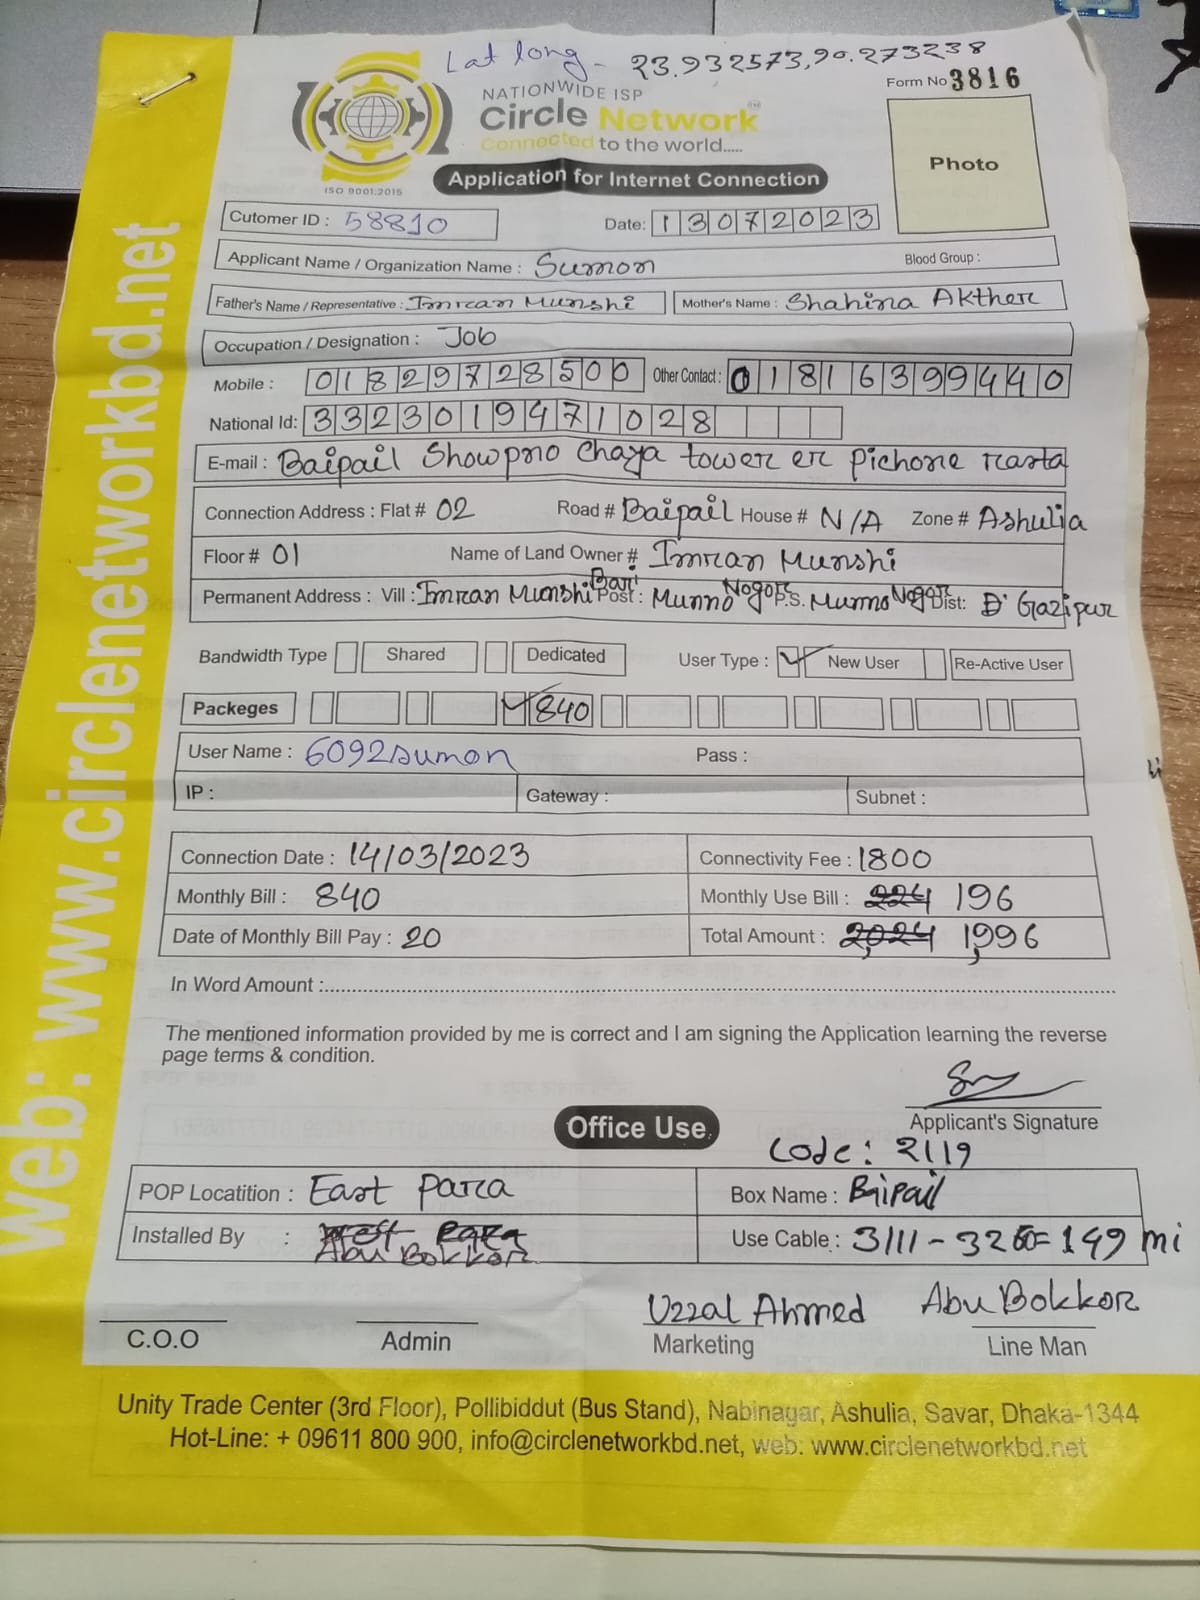 Lat long - 23.932573,90.273238
NATIONWIDE ISP
Form No 3816
Circle Network
Connected to the world.....
ISO 9001:2015
Application for Internet Connection
Photo
Cutomer ID : 58810 Date: 13072023
Applicant Name / Organization Name : Sumon Blood Group :
Father's Name / Representative : Imran Munshi Mother's Name : Shahina Akther
Occupation / Designation : Job
Mobile : 01829728500 Other Contact : 01816399440
National Id: 3323019471028
E-mail : Baipail Showpno Chaya tower er pichone rasta
Connection Address : Flat # 02 Road # Baipail House # N/A Zone # Ashulia
Floor # 01 Name of Land Owner # Imran Munshi
Permanent Address : Vill : Imran Munshi Bari Post : Munno Nogor P.S. Munno Nogor Dist: Gazipur
Bandwidth Type Shared Dedicated User Type : New User Re-Active User
Packeges 840
User Name : 6092sumon Pass :
IP : Gateway : Subnet :
Connection Date : 14/03/2023 Connectivity Fee : 1800
Monthly Bill : 840 Monthly Use Bill : 224 196
Date of Monthly Bill Pay : 20 Total Amount : 2,024 1,996
In Word Amount :
The mentioned information provided by me is correct and I am signing the Application learning the reverse
page terms & condition.
Applicant's Signature
Office Use
Code : 2119
POP Locatition : East para Box Name : Baipail
Installed By : Abu Bokkor Use Cable : 3111 - 3260= 149 mi
Uzzal Ahmed Abu Bokkor
C.O.O Admin Marketing Line Man
Unity Trade Center (3rd Floor), Pollibiddut (Bus Stand), Nabinagar, Ashulia, Savar, Dhaka-1344
Hot-Line: + 09611 800 900, info@circlenetworkbd.net, web: www.circlenetworkbd.net
web: www.circlenetworkbd.net